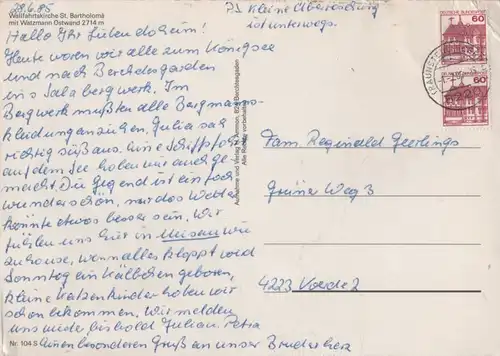 28.6.85
Wallfahrtskirche St. Bartholomä
mit Watzmann Ostwand 2714 m
Hallo Ihr Lieben daheim!
Heute waren wir alle zum Königsee
und nach Berchdesgarden
ins Salzbergwerk. Im
Bergwerk mußten alle Bergmanns-
kleidung anziehen. Julia sah
richtig süß aus. Eine Schifffahrt
auf dem See haben wir auch ge
macht. Die Gegend ist einfach
wunderschön, nur das Wetter
könnte etwas besser sein. Wir
fühlen uns hier in wie
zuhause, wenn alles kloppt wird
Sonntag ein Kälbchen geboren,
kleine Katzenkinder haben wir
schon bekommen. Wir melden
uns wieder, bis bald Julian. Petra
Nr. 104 S
Einen besonderen Gruß an unser Bruderherz
PS Kleine Überraschung
ist unterwegs.
Aufnahme und Verlag Ammon, 8240 Berchtesgaden
Alle Rechte vorbehalten
DEUTSCHE BUNDESPOST
60
60
Fam. Reginald Geerlings
Grüner Weg 3
4223 Voerde 2